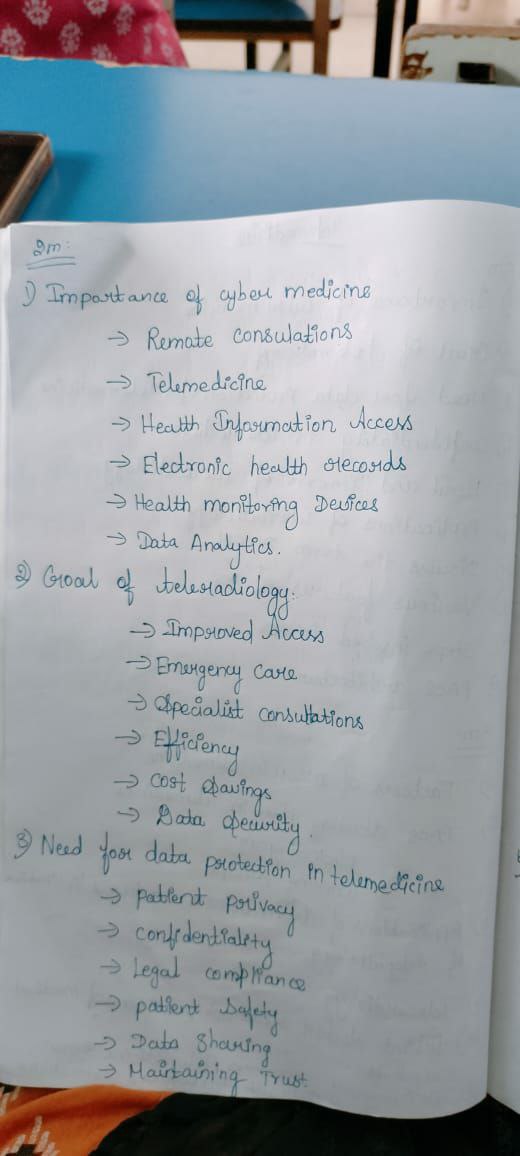 2m:
1) Importance of cyber medicine
→ Remote consulations
→ Telemedicine
→ Health Information Access
→ Electronic health records
→ Health monitoring Devices
→ Data Analytics.
2) Goal of teleradiology:
→ Improved Access
→ Emergency Care
→ Specialist consultations
→ Efficiency
→ Cost Savings
→ Data Security.
3) Need for data protection in telemedicine
→ patient privacy
→ confidentiality
→ Legal compliance
→ patient Safety
→ Data Sharing
→ Maintaining Trust.